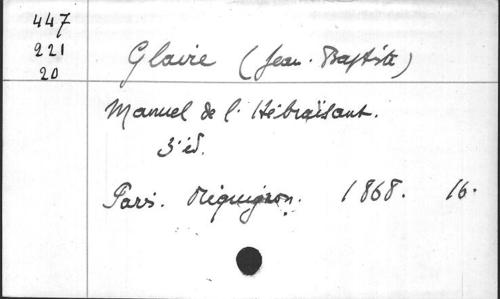 447
221
20
Glaire (Jean-Baptiste)
Manuel de l'Hébraïsant.
3e éd.
Paris. Méquignon. 1868. 16.